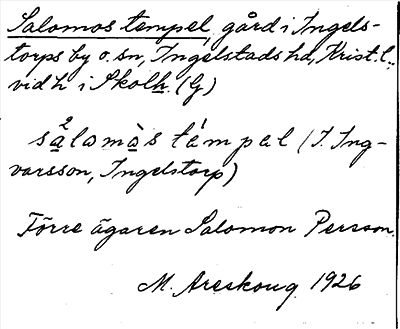 Salomos tempel, gård i Ingels-
torps by o. sn, Ingelstads hd, Krist. l.,
vid h i Skolh. (G)
sálomàs támpəl (J. Ing-
varsson, Ingelstorp)
Förre ägaren Salomon Persson.
M. Areskoug. 1926